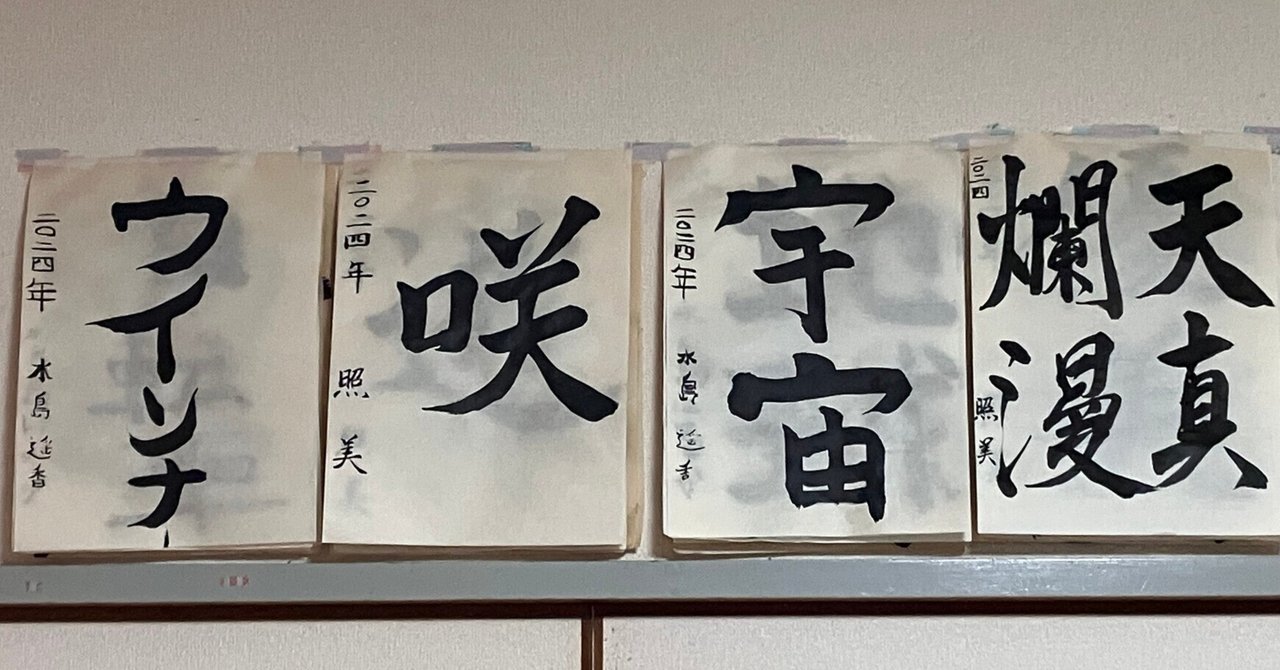 天真
爛漫
二〇二四 照美
宇宙
二〇二四年 水島
咲
二〇二四年 照美
ウインナー
二〇二四年 水島